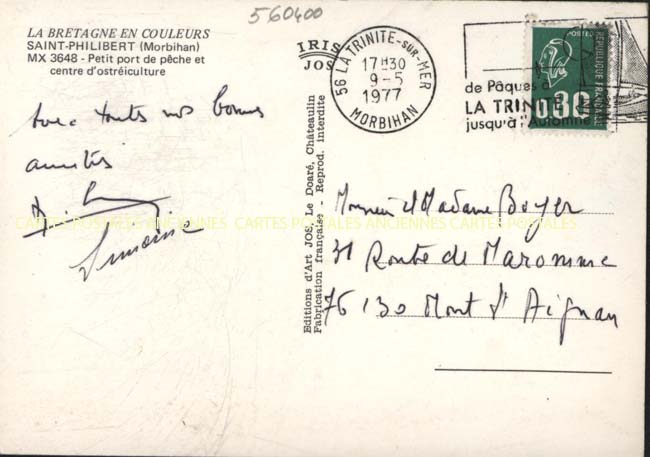 560400
LA BRETAGNE EN COULEURS
SAINT-PHILIBERT (Morbihan)
MX 3648 - Petit port de pêche et
centre d'ostréiculture
Avec toutes nos bonnes
amitiés
Simone
IRIS
JOS
Editions d'Art JOS, Le Doaré, Châteaulin
Fabrication française - Reprod. interdite
56 LA TRINITE-SUR-MER
17H30
9-5
1977
MORBIHAN
de Pâques à
LA TRINITE
jusqu'à l'Automne
POSTES
REPUBLIQUE FRANCAISE
0,80
Monsieur et Madame Boyer
31 Route de Maromme
76130 Mont St Aignan
CARTES POSTALES ANCIENNES CARTES POSTALES ANCIENNES CARTES POSTALES ANCIENNES